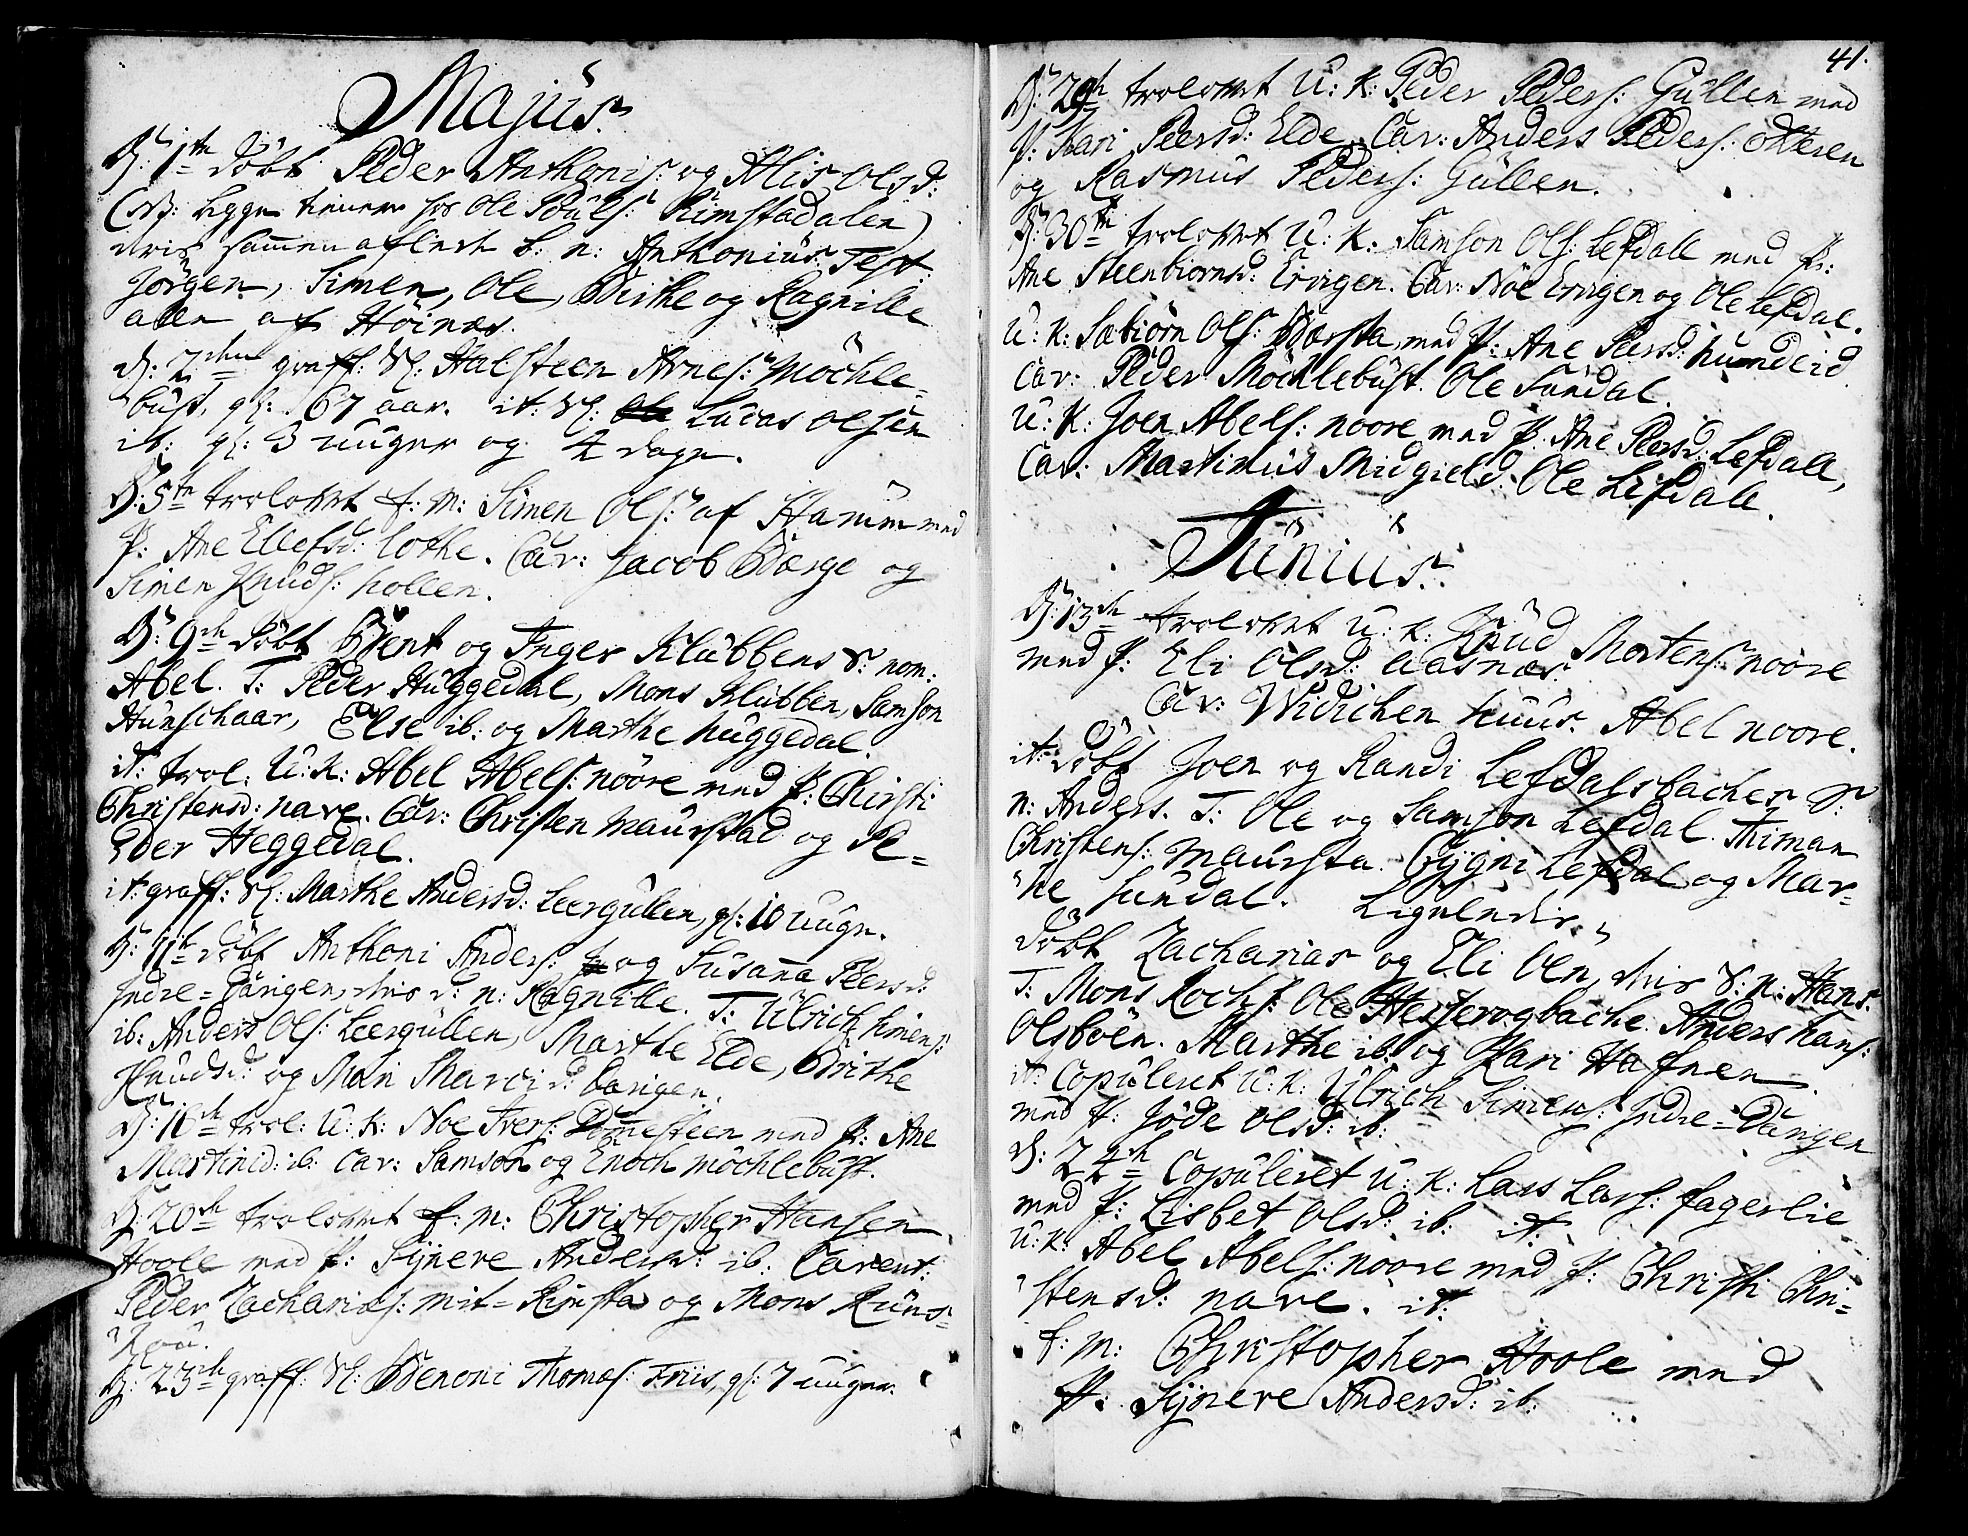 Majus.
D: 1te döbt Peder Anthonis: og Alis Olsd:
(NB: ligger hiemme hos Ole Pouls: Rimstadalen)
deris sammen aflede b. n: Anthonius. Test:
Jörgen, Simen, Ole, Birthe og Ragnille
alle af Höinæs.
D: 2den graff: Sl: Halsteen Arnes: Möchle-
bust, gl: 67 aar. it: Sl: Lucas Olsen
ib: gl: 3 uuger og 4 dage.
D: 5te trolovet f: m: Simen Ols: af Hamm med
P: Ane Ellefsd: Lothe. Cav: Jacob Berge og
Simen Knuds: hollen.
D: 9de döbt Bent og Inger Klubbens S: nom:
Abel. T: Peder Huggedal, Mons Klubben, Samson
Hunschaar, Else ib: og Marthe huggedal.
it: trol: U: K: Abel Abels: nöore med P: Christi
Christensd: nave. Cav: Christen Maurstad og Pe-
der Heggedal.
it: graff: Sl: Marthe Andersd: Leergullen, gl: 10 uuge.
D: 11te döbt Anthoni Anders: og Susanna Peersd:
Indre-Davigen, deris d: n: Ragnille. T: Ulrich Simens:
ib: Anders Ols: Leergullen, Marthe Elde, Birthe
Knudsd: og Mari Marcisd: Davigen.
D: 16de trol: U: K: Noe Ivers: Duesteen med P: Ane
Martinid: ib: Cav: Samson og Enoch Möchlebust.
D: 20de trolovet f: m: Christopher Hansen
Hoole med P: Synneve Andersd: ib: Cavent:
Peder Zacharias: mit-Rimsta og Mons Runs-
D: 23de graff: Sl: Benoni Thomes: Friis, gl: 7 uuger.
41.
D: 29de trolovet U: K: Peder Peders: Gullen med
P: Kari Peersd: Elde. Cav: Anders Peders: Otteren
og Rasmus Peders: Gullen.
D: 30te trolovet U: K: Samson Ols: Lefdall med P:
Ane Steenbiornsd: Ervigen. Cav: Noe Ervigen og Ole Lefdal.
U: K: Sæbiörn Ols: Børsta, med P: Ane Peersd: hundeid
Cav: Peder Möchlebust. Ole Sundal.
U: K: Joen Abels: noore med P: Ane Peersd: Lefdall,
Cav: Martinus Midgield. Ole Lefdall.
Junius.
D: 13de trolovet U: K: Knud Mortens: noore
med P: Eli Olsd: Aasnæs.
Cav: Widichen huus. Abel noore.
it: döbt Joen og Randi Lefdalsbaches S:
n: Anders. T: Ole og Samson Lefdal. Thiman
Christens: Maursta. Gygni Lefdal og Mar-
he Sundal. Ligeledis
döbt Zacharias og Eli Öen, deris S: n: Hans
T: Mons Rochs: Ole Hesterogbache. Anders hans:
Olsböen. Marthe ib: og Kari Hafnen.
it: Copuleret U: K: Ulrich Simens: Indre-Davigen
med P: Jöde Olsd: ib:
D: 24de Copuleret U: K: Lass Lars: fagerlie
med P: Lisbet Olsd: ib: it:
U: K: Abel Abels: noore med P: Christi Chri-
stensd: nave. it:
f: m: Christopher Hoole med
P: Synneve Andersd: ib: